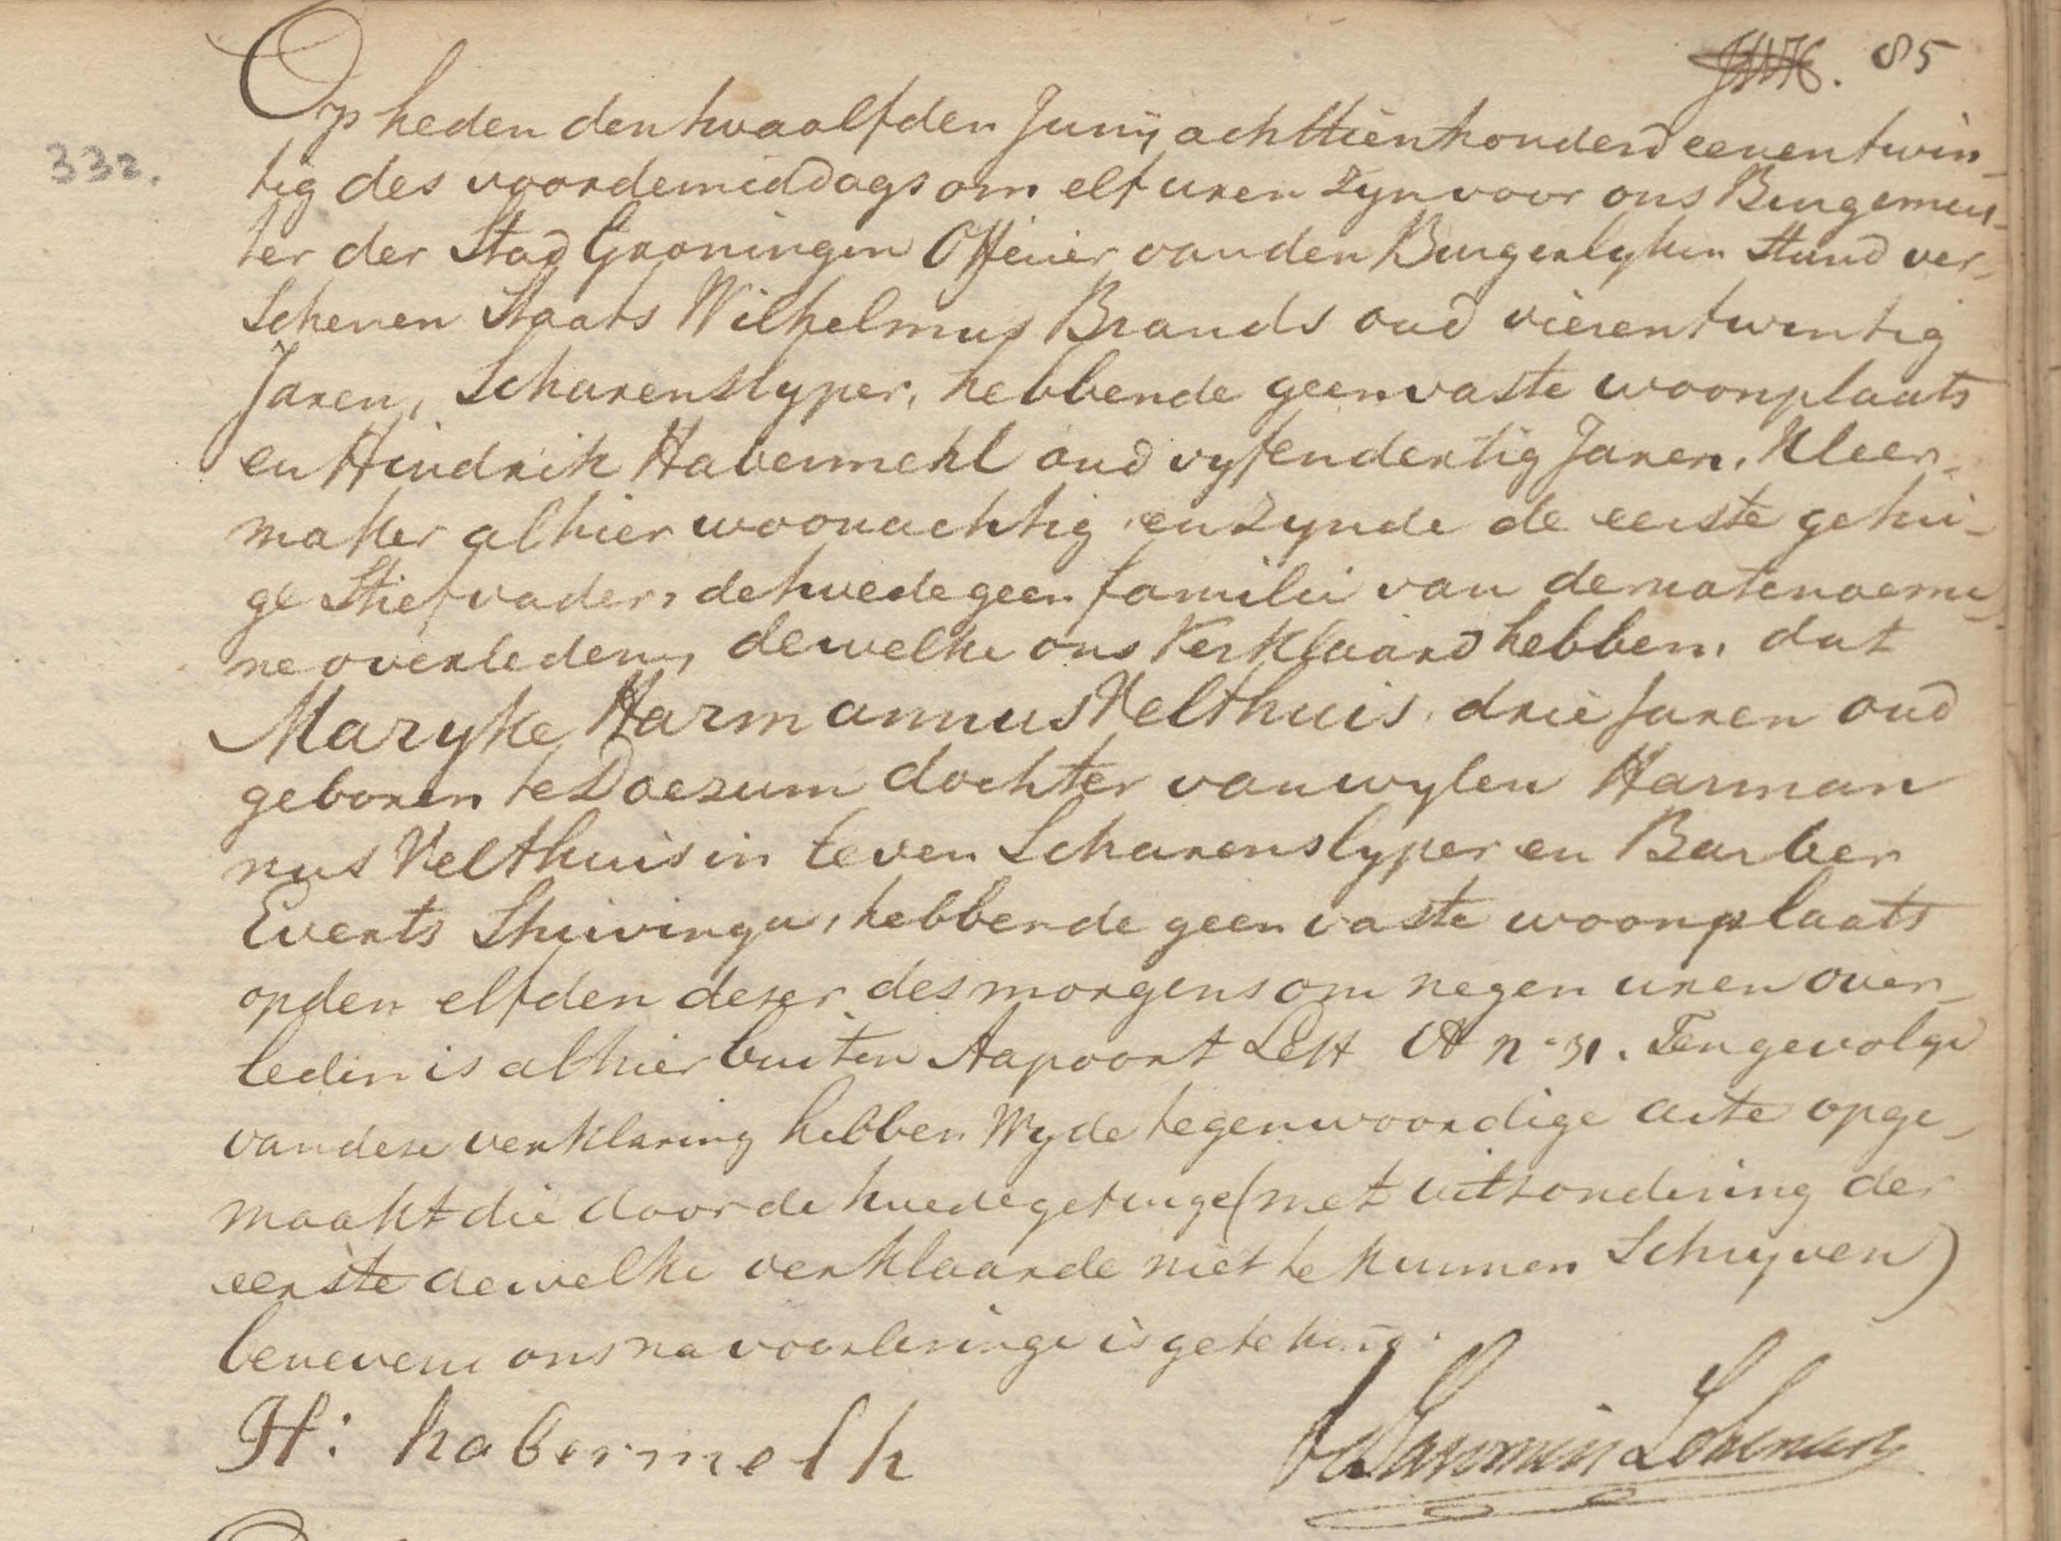 85
332.
Op heden den twaalfden Junij achttienhonderd eenentwin-
tig des voordemiddags om elf uren zyn voor ons Burgemees-
ter der Stad Groningen Officier van den Burgerlyken Stand ver-
schenen Staats Wilhelmus Brands oud vierentwintig
Jaren, Scharenslyper, hebbende geen vaste woonplaats
en Hindrik Habermehl oud vyfendertig Jaren, Kleer-
maker alhier woonachtig, en zynde de eerste getui-
ge Stiefvader, de twede geen familie van de natenoeme-
ne overleden, dewelke ons Verklaard hebben, dat
Maryke Harmannus Velthuis, drie Jaren oud
geboren te Doezum dochter van wylen Harman
nus Velthuis in leven Scharenslyper en Barber
Everts Stuivinga, hebbende geen vaste woonplaats
op den elfden dezer des morgens om negen uren over-
leden is alhier buiten Apoort Lett A n° 31. Ten gevolge
van deze verklaring hebben Wy de tegenwoordige acte opge-
maakt die door de twede getuige (met uitzondering der
eerste dewelke verklaarde niet te kunnen Schryven)
benevens ons na voorlezinge is getekend.
H: habermelh
Lohman